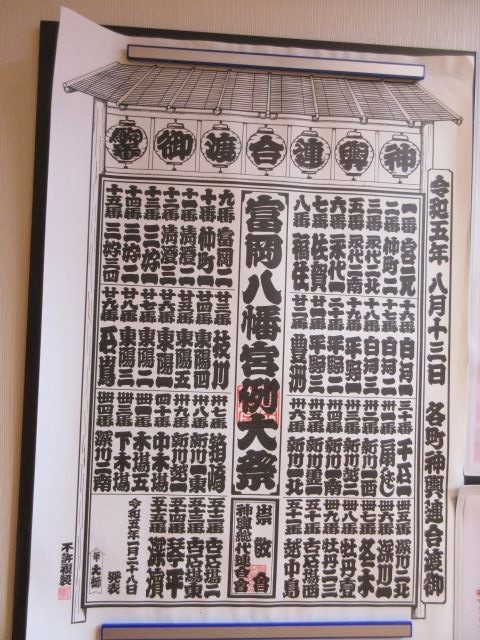 神輿連合渡御
令和五年 八月十三日 各町神輿連合渡御
一番 宮元
二番 仲町二
三番 永代二北
五番 永代二南
六番 永代一
七番 佐賀
八番 福住
十六番 白河
十七番 白河二
十八番 白河三
十九番 平野一
二十番 平野二
廿一番 平野三
廿二番 豊洲
三十番 千石一
卅一番
卅二番
卅三番
卅四番
卅五番
卅六番 新川一北
深川二北
深川一
冬木
牡丹壹
牡丹二三
五十番 古石場西
五十一番 越中島
富岡八幡宮例大祭
崇敬会
神輿総代連合会
九番 富岡二
十番 仲町一
十一番 清澄二
十二番 清澄三
十三番 三好一
十四番 三好二
十五番 三好三
廿三番 枝川
廿四番 東陽四
廿五番 東陽五
廿六番 東陽一
廿七番 東陽二
廿八番 東陽三
廿九番 石島
卅七番 箱崎
卅八番 新川一東
卅九番 新川越一
四十番 中木場
木場五
下木場
深川二南
五十二番 古石場二
五十三番 古石場東
五十四番 琴平
五十五番 深濱
令和五年一月二十八日 発表
不許複製